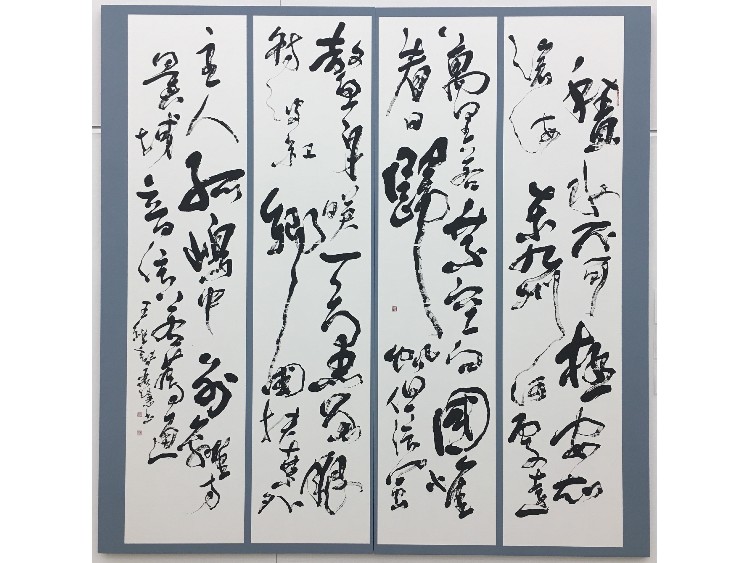 積水不可極安知
滄海東九州何處遠
萬里若乘空向國惟
看日歸帆但信風
鰲身映天黑魚眼
射波紅鄉國扶桑外
主人孤嶋中別離方
異域音信若為通
王維詩